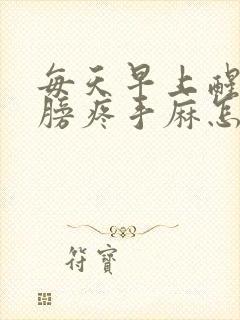 每天早上醒
膀疼手麻怎
符寶